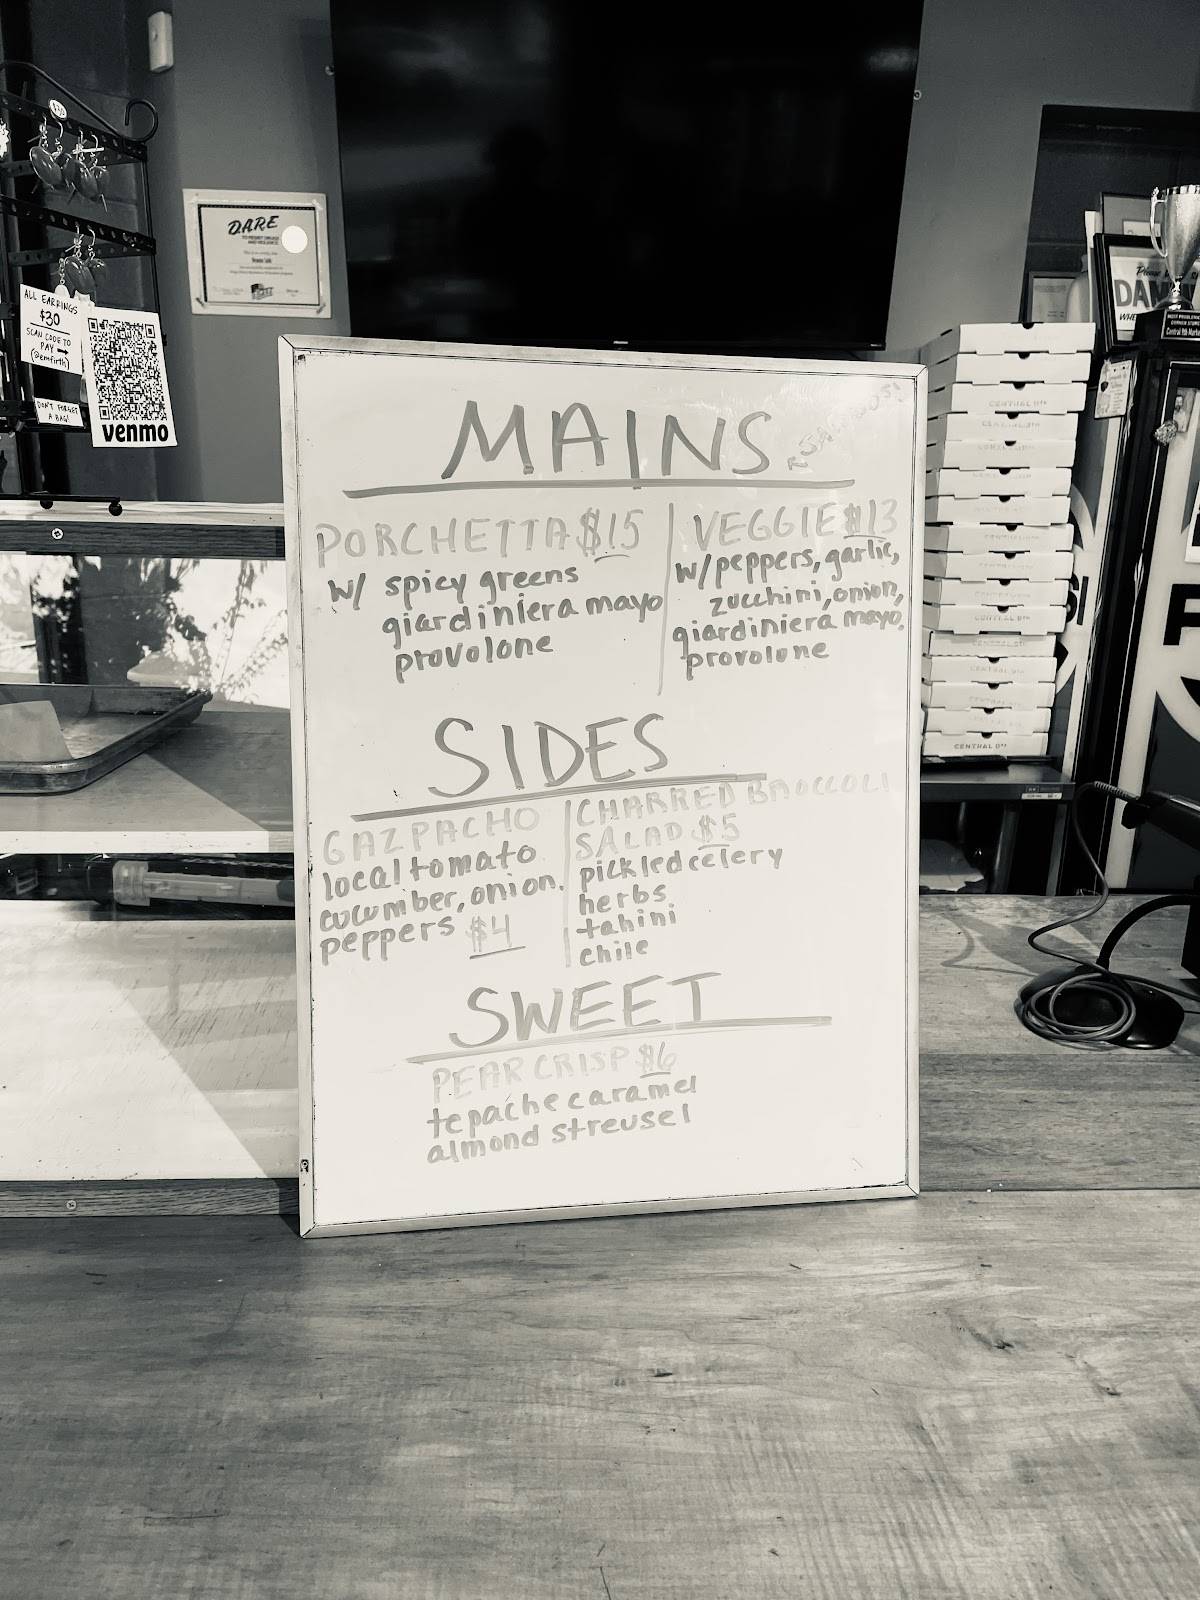 D.A.R.E
TO RESIST DRUGS
AND VIOLENCE
ALL EARRINGS
$30
SCAN CODE TO
PAY →
(@emfirth)
DON'T FORGET
A BAG!
venmo
MAINS
PORCHETTA $15
w/ spicy greens
giardiniera mayo
provolone
VEGGIE $13
w/peppers, garlic,
zucchini, onion,
giardiniera mayo,
provolone
SIDES
GAZPACHO
local tomato
cucumber, onion,
peppers $4
CHARRED BROCCOLI
SALAD $5
pickled celery
herbs
tahini
chile
SWEET
PEAR CRISP $6
tepache caramel
almond streusel
CENTRAL 9TH